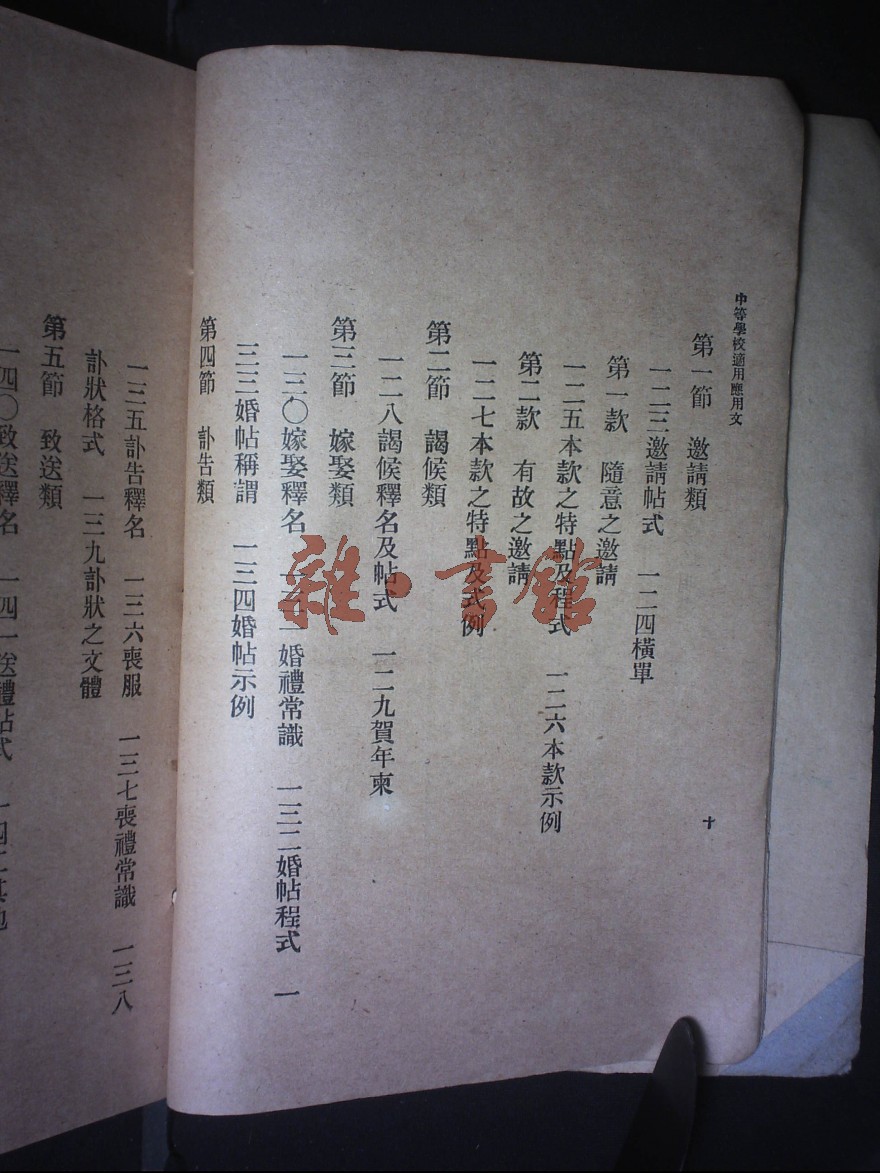 中等學校適用應用文
十
第一節 邀請類
一二三邀請帖式 一二四橫單
第一款 隨意之邀請
一二五本款之特點及程式 一二六本款示例
第二款 有故之邀請
一二七本款之特點及式例
第二節 謁候類
一二八謁候釋名及帖式 一二九賀年柬
第三節 嫁娶類
一三〇嫁娶釋名 一三一婚禮常識 一三二婚帖程式 一
三三婚帖稱謂 一三四婚帖示例
第四節 訃告類
一三五訃告釋名 一三六喪服 一三七喪禮常識 一三八
訃狀格式 一三九訃狀之文體
第五節 致送類
一四〇致送釋名 一四一送禮帖式 一四二其他
雜·書館